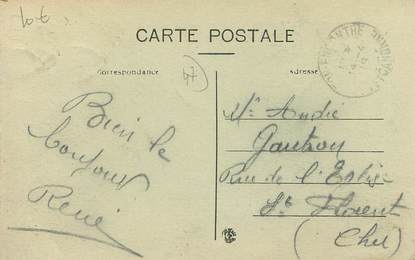 10 €
CARTE POSTALE
Correspondance
47
adresse
Bien le
bonjour
René
Mr André
Gautron
Rue de l'Eglise
St Florent
(Cher)